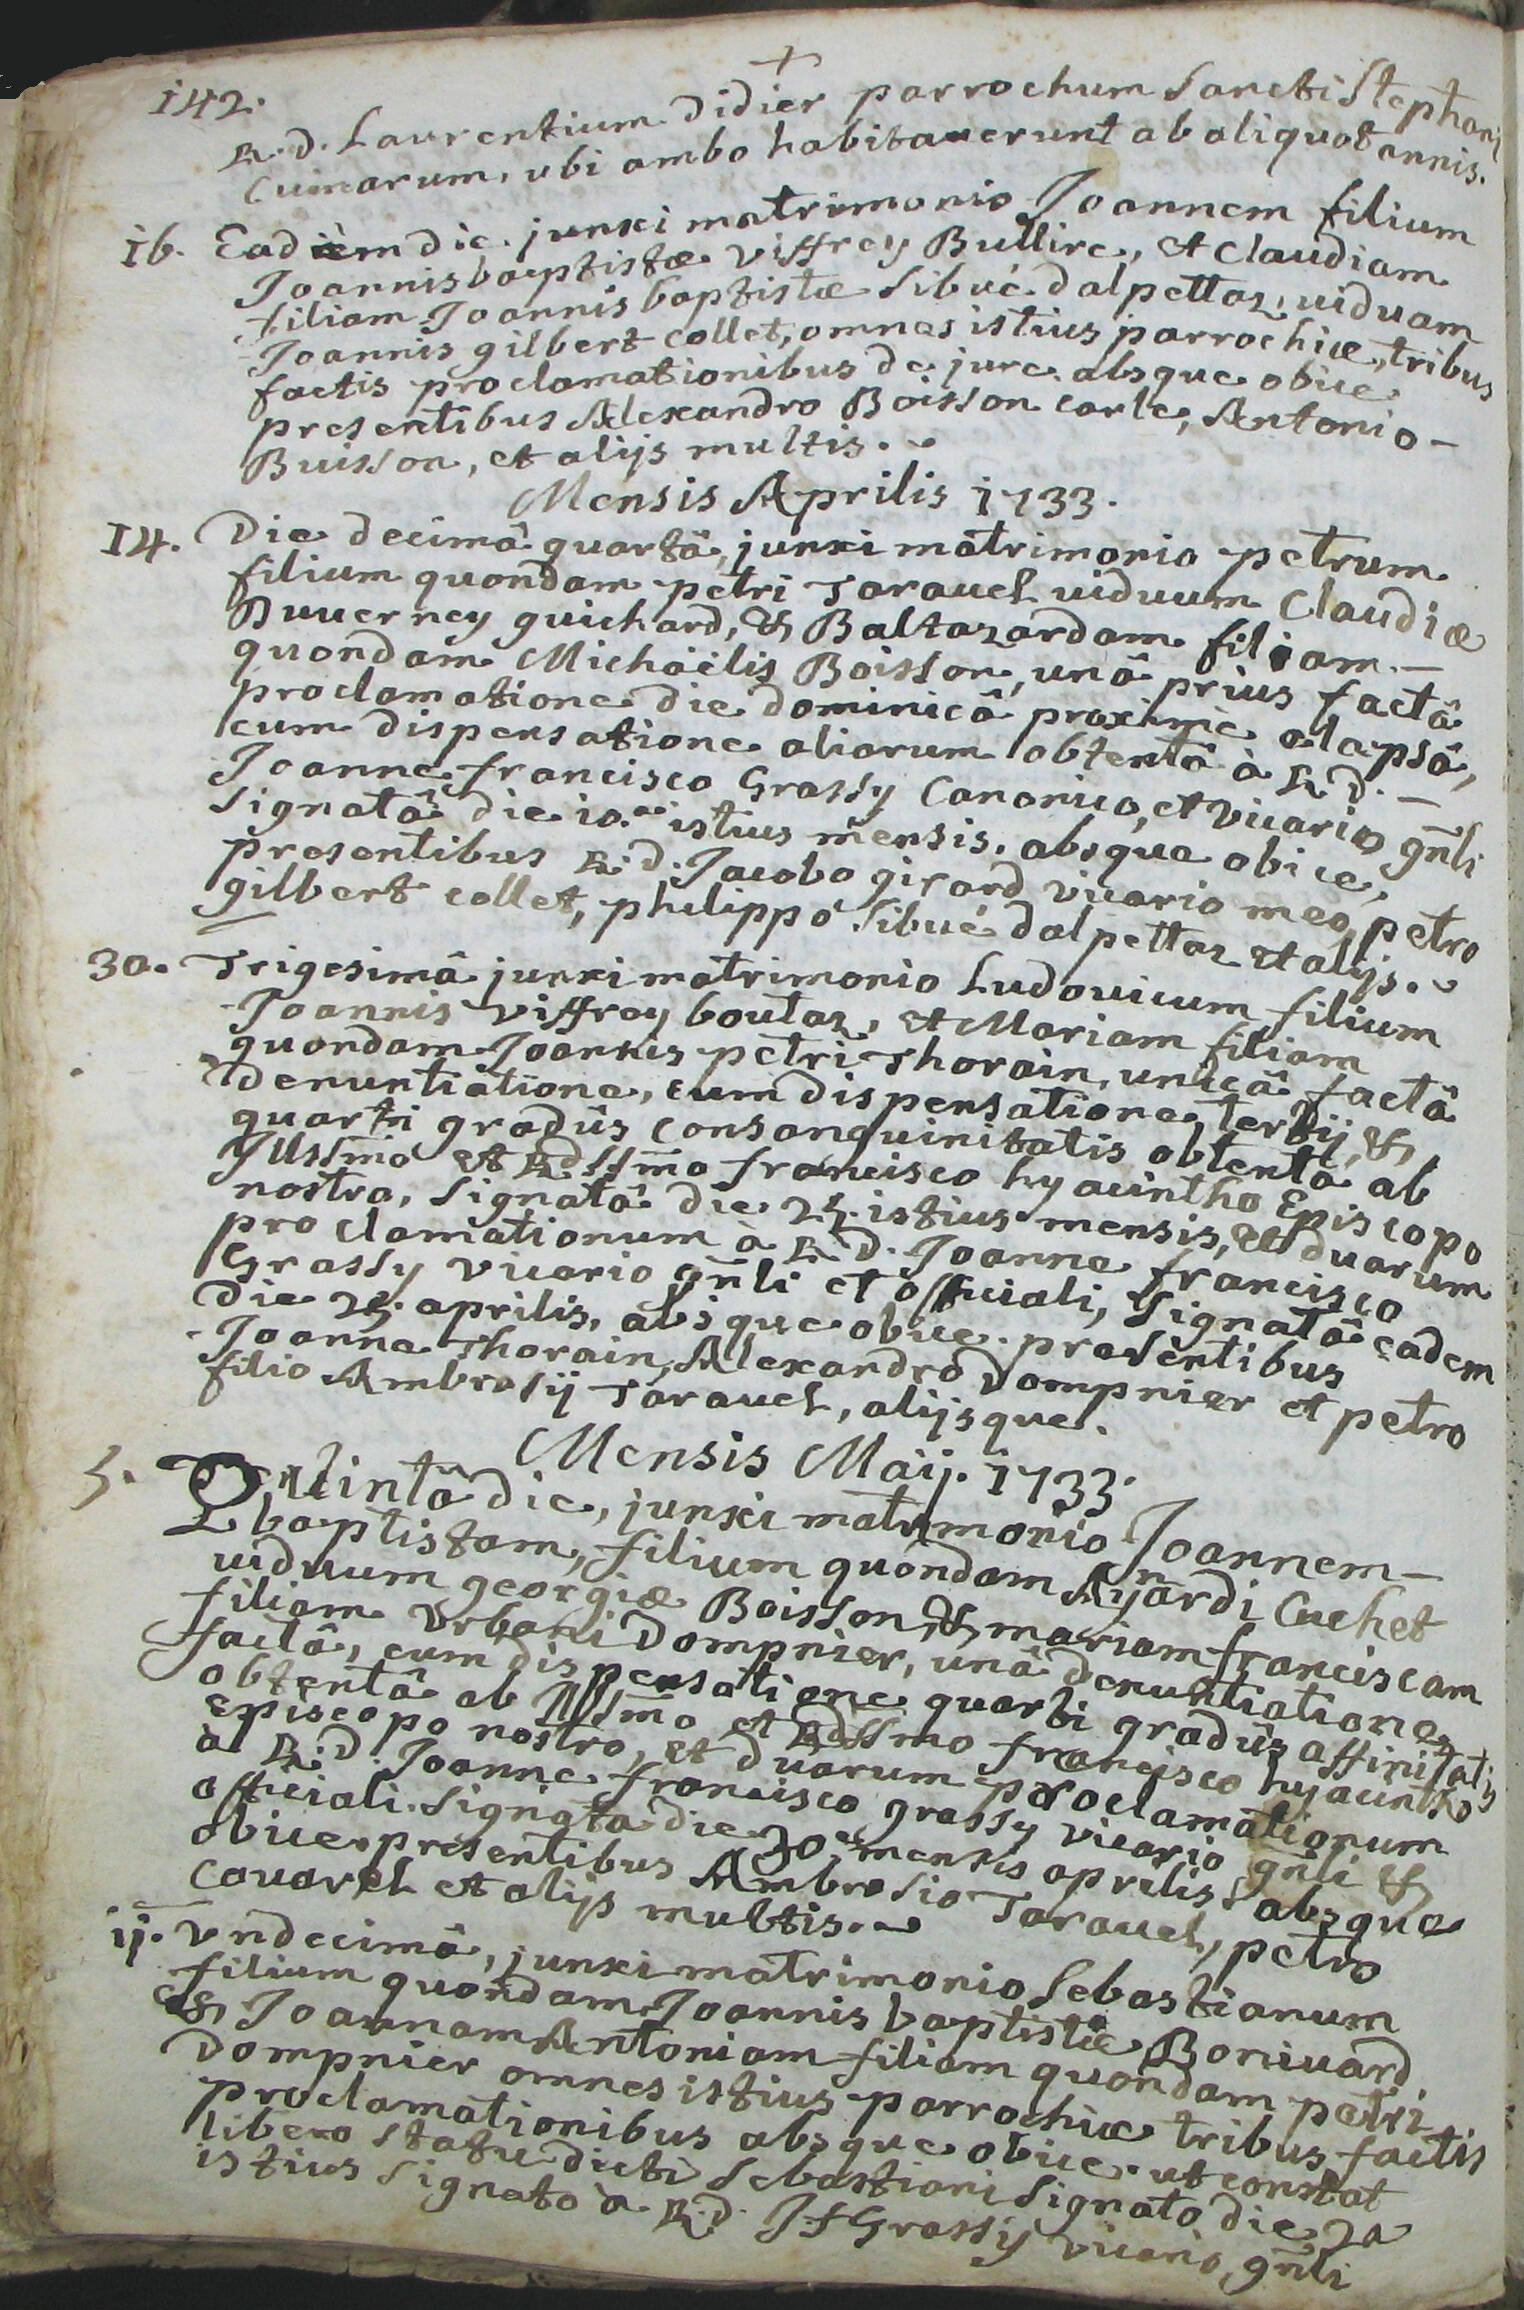 142.
+
R.d. Laurentium Didier parrochum Sancti Stephani
Cuinarum, ubi ambo habitauerunt ab aliquot annis.
16. Eadem die junxi matrimonio Joannem filium
Joannisbaptistæ Viffrey Bullire, et Claudiam
filiam Joannis baptistæ Sibué dalpettaz, uiduam
Joannis gilbert collet, omnes istius parrochiæ, tribus
factis proclamationibus de jure absque obice
presentibus Alexandro Boisson carle, Antonio -
Buisson, et alijs multis.
Mensis Aprilis 1733.
14. Die decimâ quartâ, junxi matrimonio petrum
filium quondam petri Tarauel uiduum Claudiæ
Duuerney guichard, & Baltazardam filiam -
quondam Michäelis Boisson, unâ prius factâ
proclamatione die dominicâ proximè elapsâ,
cum dispensatione aliarum obtentâ à R.d. -
Joanne francisco Grassy Canonico, et vicario gñli
Signatâ die 10.â istius mensis, absque obice,
presentibus R.d. Jacobo girard vicario meo, petro
gilbert collet, philippo Sibué dalpettaz et alijs.
30. Trigesimâ junxi matrimonio Ludovicum filium
Joannis Viffrey boutaz, et Mariam filiam
quondam Joannis petri Thorain, unicâ factâ
denuntiatione, cum dispensatione tertij, &
quarti gradûs consanguinitatis obtentâ ab
Jllssm̃o et Rdssm̃o francisco hyacintho Episcopo
nostro, Signatâ die 25. istius mensis, et duarum
proclamationum à R.d. Joanne francisco
Grassy vicario gñli et officiali, Signatâ eadem
die 25. aprilis, absque obice. presentibus
Joanne Thorain, Alexandro Dompnier et petro
filio Ambrosij Tarauel, alijsque.
Mensis Maij. 1733.
5. Quintâ die, junxi matrimonio Joannem -
baptistam, filium quondam Aynardi Cuchet
uiduum georgiæ Boisson, & mariam franciscam
filiam Vrbani Dompnier, unâ denuntiatione
factâ, cum dispensatione quarti gradûs affinitatis
obtentâ ab Jllssm̃o et Rdssmo francisco hyacintho
Episcopo nostro, et duarum proclamationum
à R.d. Joanne francisco grassy vicario gñli &
officiali. Signata die 30â mensis aprilis absque
obice presentibus Ambrosio Tarauel, petro
Couarel et alijs multis.
ij. Vndecimâ, junxi matrimonio Sebastianum
filium quondam Joannis baptistæ Boniuard
& Joannam Antoniam filiam quondam petri
Dompnier omnes istius parrochiæ tribus factis
proclamationibus absque obice. ut constat
libero statu dicti Sebastiani Signato die 2a
istius Signato à R.d. Jf Grassy vicario gñli